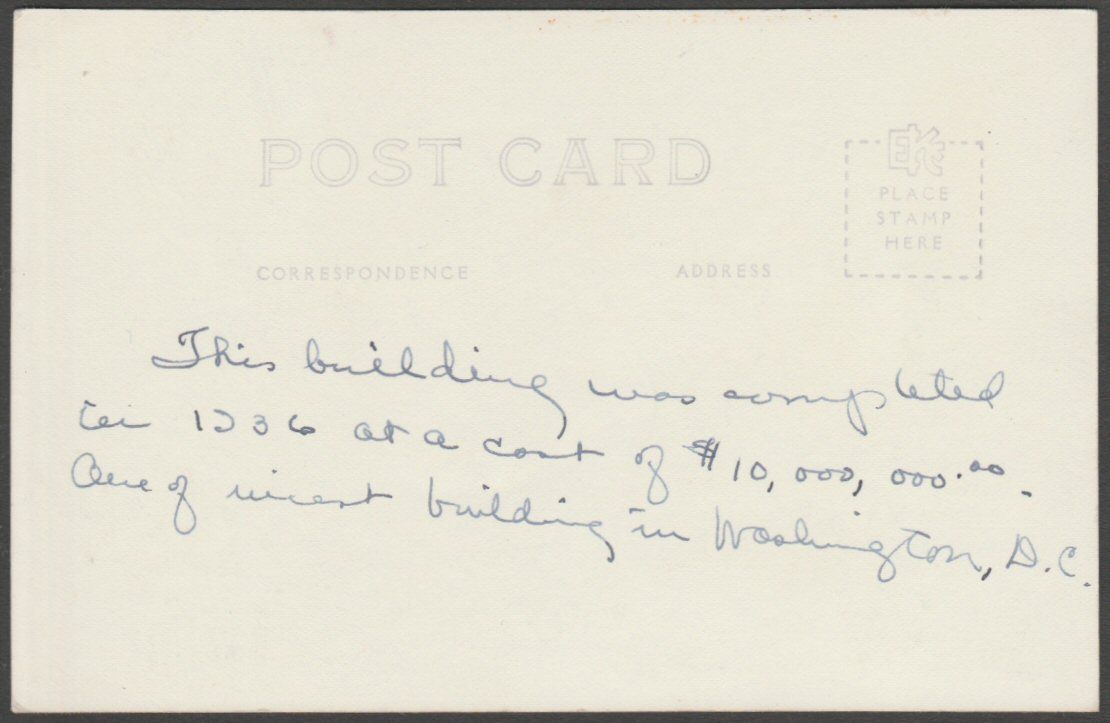 POST CARD
EKC
PLACE
STAMP
HERE
CORRESPONDENCE ADDRESS
This building was completed
in 1936 at a cost of $10,000,000.00.
One of nicest building in Washington, D.C.